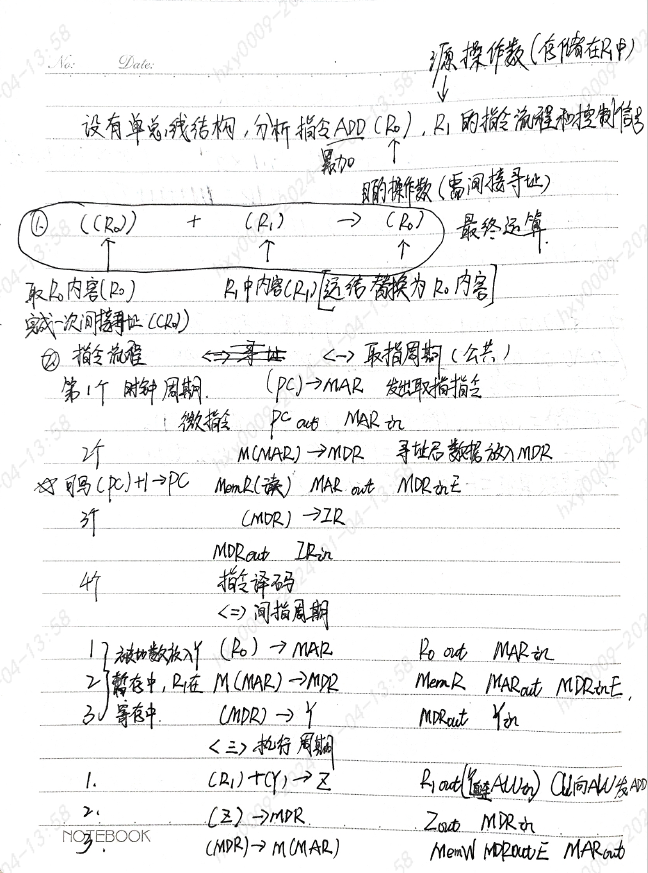 No:
Date:
源操作数(存储在R1中)
设有单总线结构,分析指令ADD (R0), R1 的指令流程和控制信号
累加
目的操作数(需间接寻址)
① ((R0)) + (R1) → (R0) 最终运算
取R0内容(R0) R1中内容(R1) [运结替换为R0内容]
完成一次间接寻址((R0))
② 指令流程 <一> 取指周期(公共)
第1个 时钟周期. (PC)→MAR 发出取指指令
微指令 PCout MARin
2个 M(MAR)→MDR 寻址后数据放入MDR
(PC)+1→PC MemR(读) MARout MDRinE
3个 (MDR)→IR
MDRout IRin
4个 指令译码
<二> 间指周期
1 被加数放入Y (R0)→MAR R0out MARin
2 暂存中,R1在 M(MAR)→MDR MemR MARout MDRinE,
3 寄存中. (MDR)→Y MDRout Yin
<三> 执行周期
1. (R1)+(Y)→Z R1out ALUin) CU向ALU发ADD
2. (Z)→MDR Zout MDRin
NOTEBOOK
3. (MDR)→M(MAR) MemW MDRoutE MARout